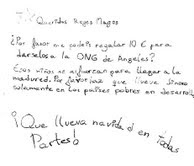 Queridos Reyes Magos
¿Por favor me podeis regalar 10 € para
darselos a la ONG de Angeles?
Esos niños se esfuerzan para llegar a la
madured. Por favor haz que llueva dinero
solamente en los países pobres en desarroll
¡Que llueva navidad en todas
Partes!